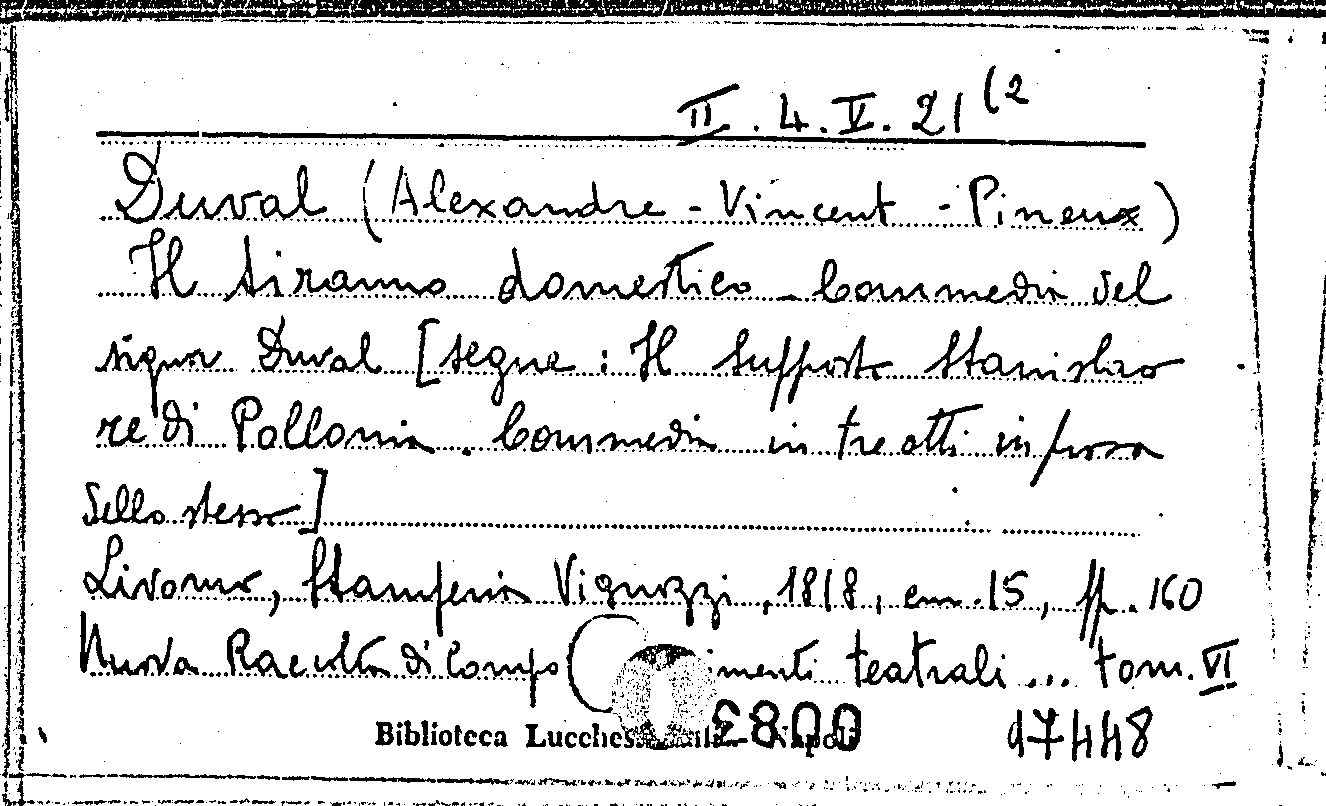 II. 4. V. 21 (2
Duval (Alexandre - Vincent - Pineux)
Il tiranno domestico - Commedia del
signor Duval [segue : Il supposto Stanislao
re di Pollonia. Commedia in tre atti in prosa
dello stesso]
Livorno, Stamperia Vignozzi, 1818, cm. 15, pp. 160
Nuova Raccolta di compo imenti teatrali ... tom. VI
Biblioteca Lucches
0083
d7448